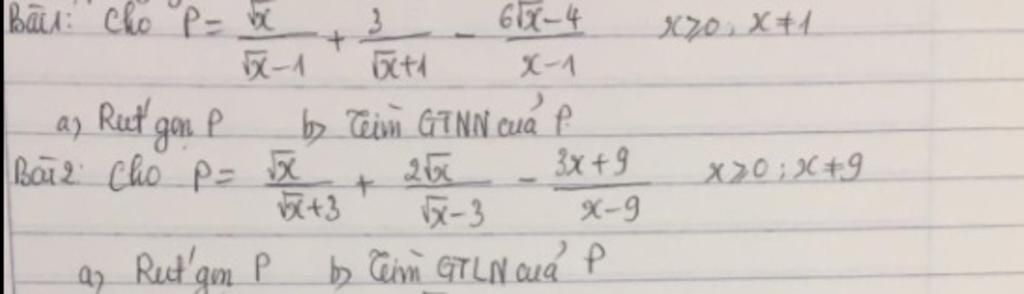 Bài 1: Cho P = √x/(√x-1) + 3/(√x+1) - (6√x-4)/(x-1) x≥0, x≠1
a) Rút gọn P b) Tìm GTNN của P
Bài 2: Cho P = √x/(√x+3) + 2√x/(√x-3) - (3x+9)/(x-9) x≥0; x≠9
a) Rút gọn P b) Tìm GTLN của P